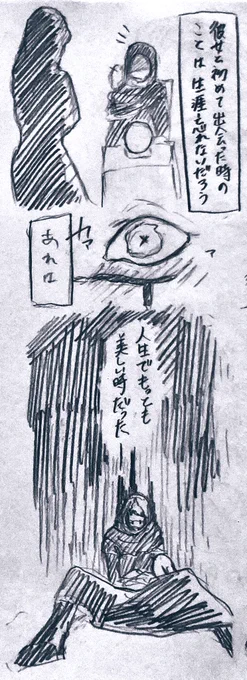 彼女と初めて出会った時の
ことは生涯忘れないだろう
カァ
あれは
人生でもっとも
美しい時だった